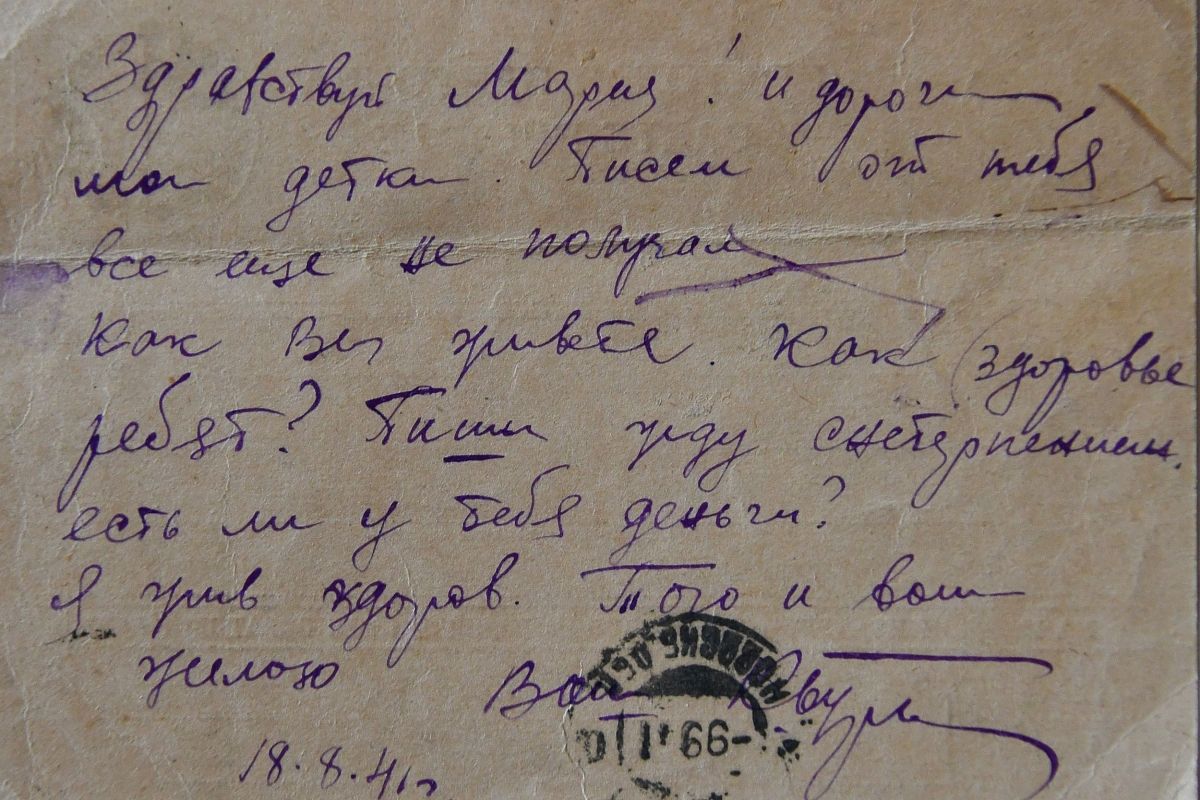 Здравствуй Мария! и дороги
мои детки. Писем от тебя
все еще не получал
Как Вы живете. Как здоровье
ребят? Пиши жду снетерпением.
есть ли у тебя деньги?
Я жив здоров. Того и вам
желаю Ваш
18.8.41г